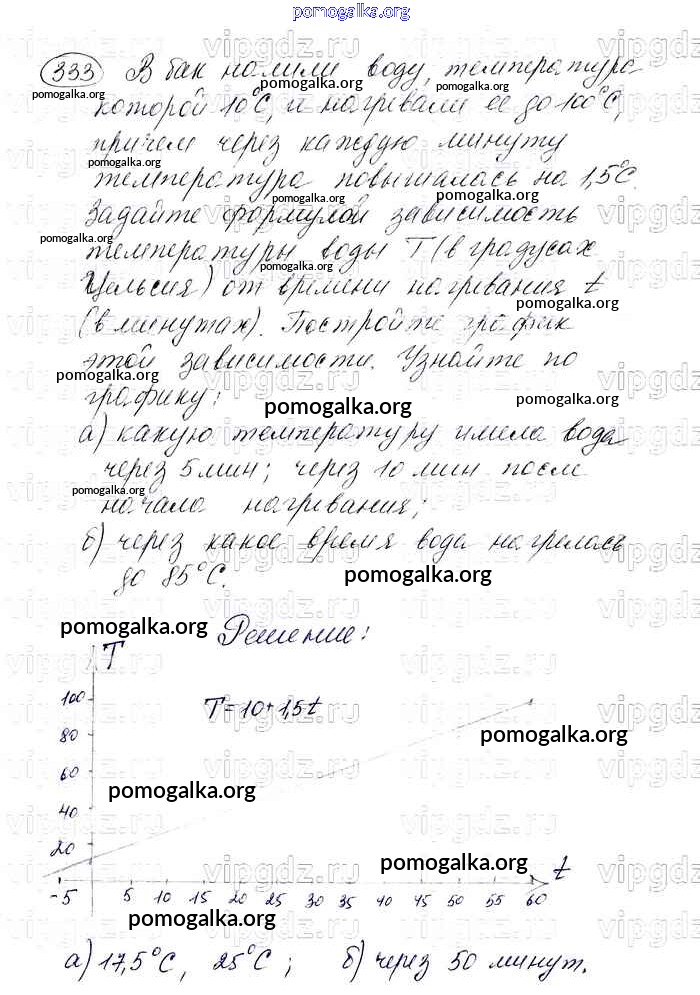 pomogalka.org
333 В бак налили воду, температура
pomogalka.org
которой 10°С, и нагревали её до 100°С,
причем через каждую минуту
pomogalka.org
температура повышалась на 1,5°С.
pomogalka.org
Задайте формулой зависимость
pomogalka.org
температуры воды Т (в градусах
pomogalka.org
Цельсия) от времени нагревания t
(в минутах). Постройте график
этой зависимости. Узнайте по
pomogalka.org
графику:
pomogalka.org
pomogalka.org
а) какую температуру имела вода
через 5 мин; через 10 мин после
pomogalka.org
начала нагревания;
б) через какое время вода нагрелась
до 85°С.
pomogalka.org
pomogalka.org
Решение:
T
100
T=10+1,5t
80
pomogalka.org
60
pomogalka.org
40
20
pomogalka.org
t
-5 5 10 15 20 25 30 35 40 45 50 55 60
pomogalka.org
а) 17,5°С, 25°С; б) через 50 минут.
vipgdz.ru